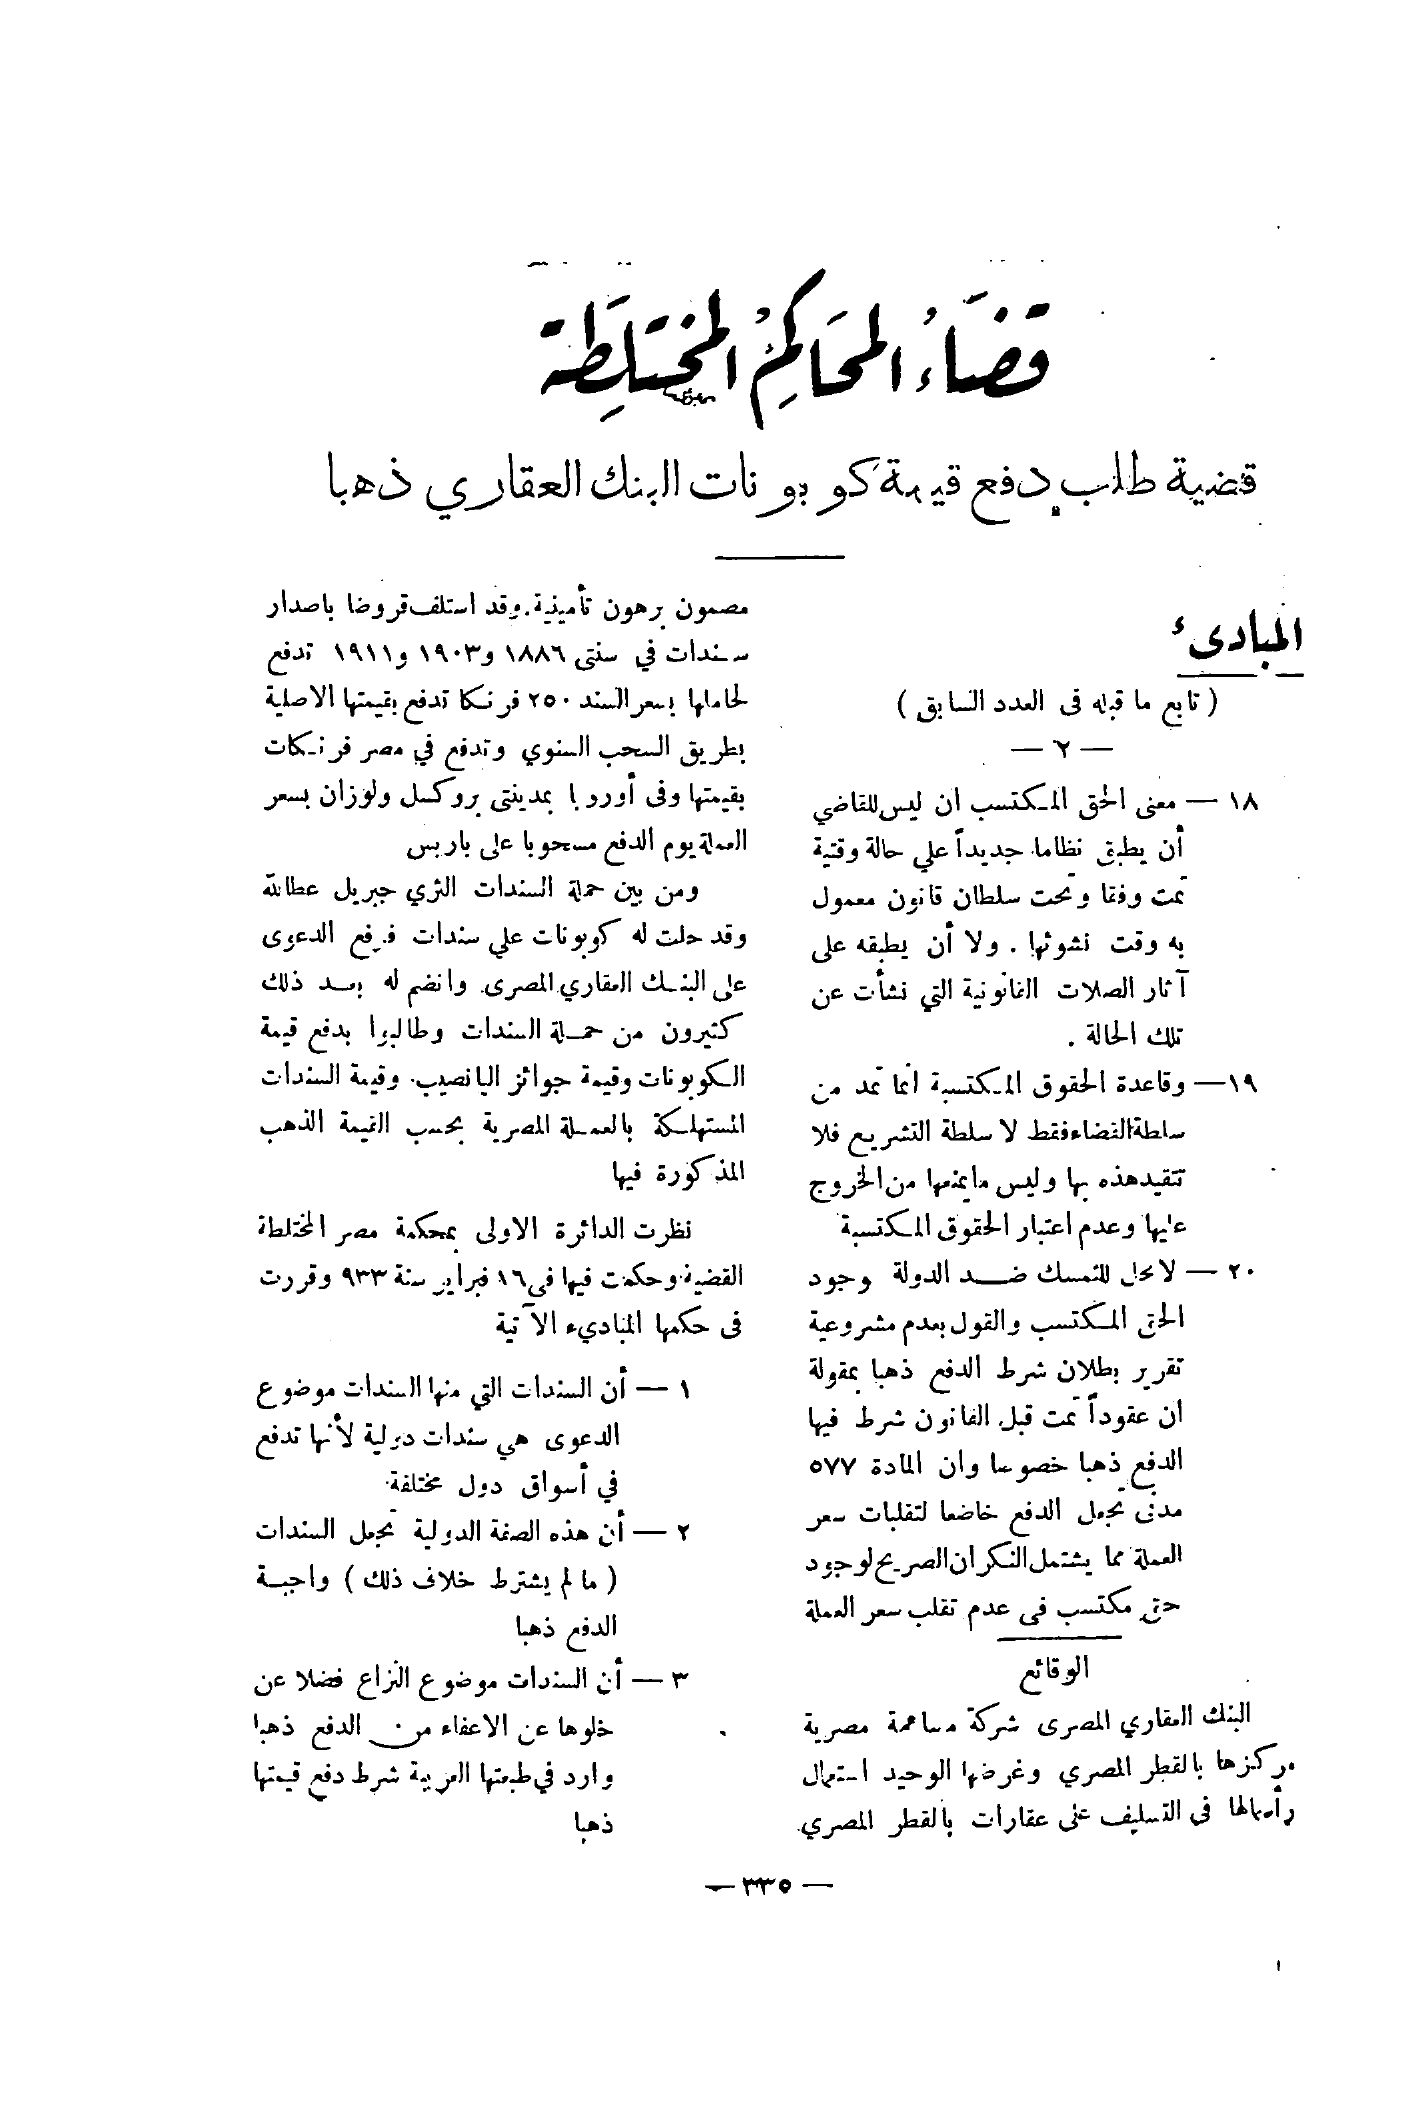 قضاء المحاكم المختلطة
قضية طلب دفع قيمة كوبونات البنك العقاري ذهبا
المبادىء
( تابع ما قبله فى العدد السابق )
— ٢ —
١٨ — معنى الحق المكتسب ان ليس للقاضي
أن يطبق نظاما جديداً علي حالة وقتية
تمت وفقا وتحت سلطان قانون معمول
به وقت نشوئها . ولا أن يطبقه على
آثار الصلات القانونية التي نشأت عن
تلك الحالة .
١٩ — وقاعدة الحقوق المكتسبة انما تمد من
سلطة القضاء فقط لا سلطة التشريع فلا
تتقيد هذه بها وليس ما يمنعها من الخروج
عليها وعدم اعتبار الحقوق المكتسبة
٢٠ — لا محل للتمسك ضد الدولة وجود
الحق المكتسب والقول بعدم مشروعية
تقرير بطلان شرط الدفع ذهبا بمقولة
ان عقوداً تمت قبل القانون شرط فيها
الدفع ذهبا خصوصا وان المادة ٥٧٧
مدنى تجعل الدفع خاضعا لتقلبات سعر
العملة مما يشتمل النكران الصريح لوجود
حق مكتسب فى عدم تقلب سعر العملة
الوقائع
البنك العقاري المصرى شركة مساهمة مصرية
مركزها بالقطر المصري وغرضها الوحيد استعمال
رأسمالها فى التسليف على عقارات بالقطر المصري
مضمون برهون تأمينية . وقد استلف قروضا باصدار
سندات في سنتى ١٨٨٦ و١٩٠٣ و١٩١١ تدفع
لحاملها بسعر السند ٢٥٠ فرنكا تدفع بقيمتها الاصلية
بطريق السحب السنوي وتدفع في مصر فرنكات
بقيمتها وفى أوروبا بمدينتى بروكسل ولوزان بسعر
العملة يوم الدفع مسحوبا على باريس
ومن بين حملة السندات الثري جبريل عطالله
وقد حلت له كوبونات علي سندات فرفع الدعوى
على البنك العقاري المصرى وانضم له بعد ذلك
كثيرون من حملة السندات وطالبوا بدفع قيمة
الكوبونات وقيمة جوائز اليانصيب . وقيمة السندات
المستهلكة بالعملة المصرية بحسب القيمة الذهب
المذكورة فيها
نظرت الدائرة الاولى بمحكمة مصر المختلطة
القضية وحكمت فيها فى ١٦ فبراير سنة ٩٣٣ وقررت
فى حكمها المباديء الآتية
١ — أن السندات التي منها السندات موضوع
الدعوى هي سندات دولية لأنها تدفع
في أسواق دول مختلفة
٢ — أن هذه الصفة الدولية تجعل السندات
( ما لم يشترط خلاف ذلك ) واجبة
الدفع ذهبا
٣ — أن السندات موضوع النزاع فضلا عن
خلوها عن الاعفاء من الدفع ذهبا
وارد في طبعتها العربية شرط دفع قيمتها
ذهبا
— ٣٣٥ —